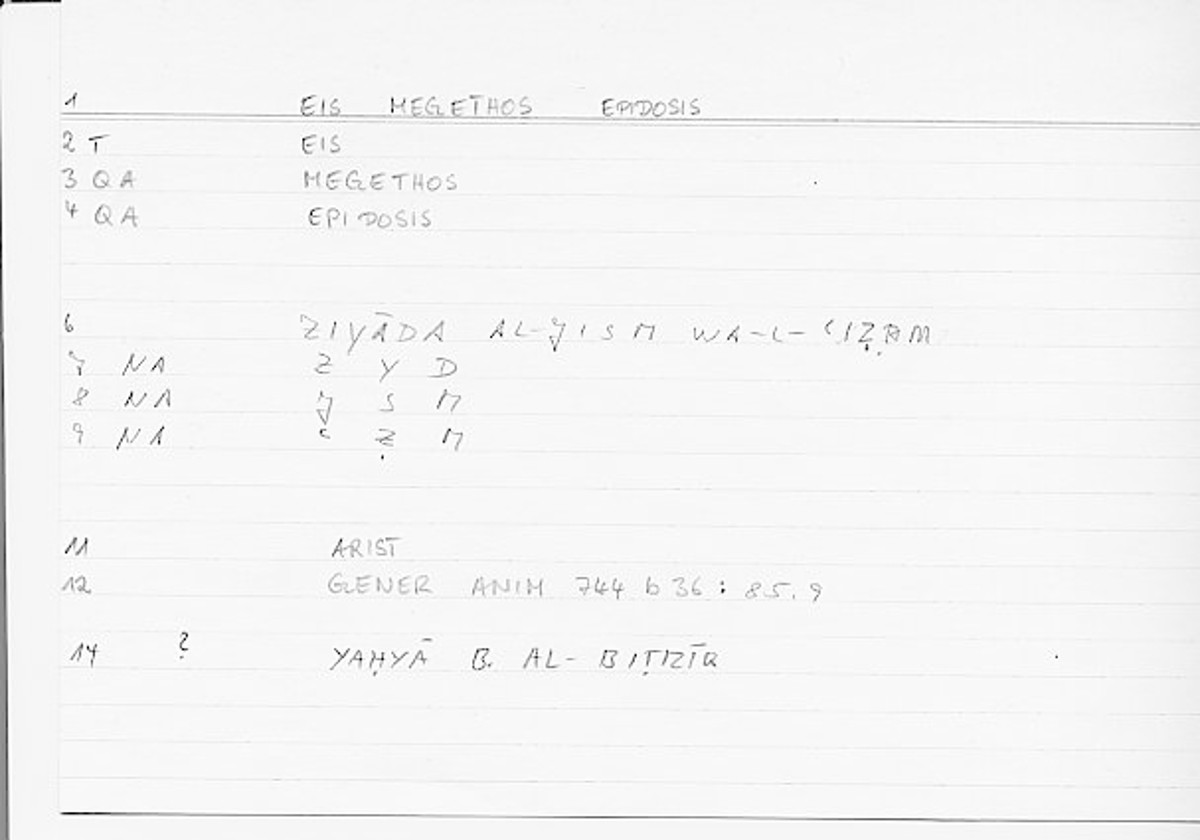 1 EIS MEGETHOS EPIDOSIS
2 T EIS
3 QA MEGETHOS
4 QA EPIDOSIS
6 ZIYĀDA AL-JISM WA-L-ʿIẒAM
7 NA Z Y D
8 NA J S M
9 NA ʿ Ẓ M
11 ARIST
12 GENER ANIM 744 b 36 : 85.9
14 ? YAḤYĀ B. AL-BIṬRĪQ